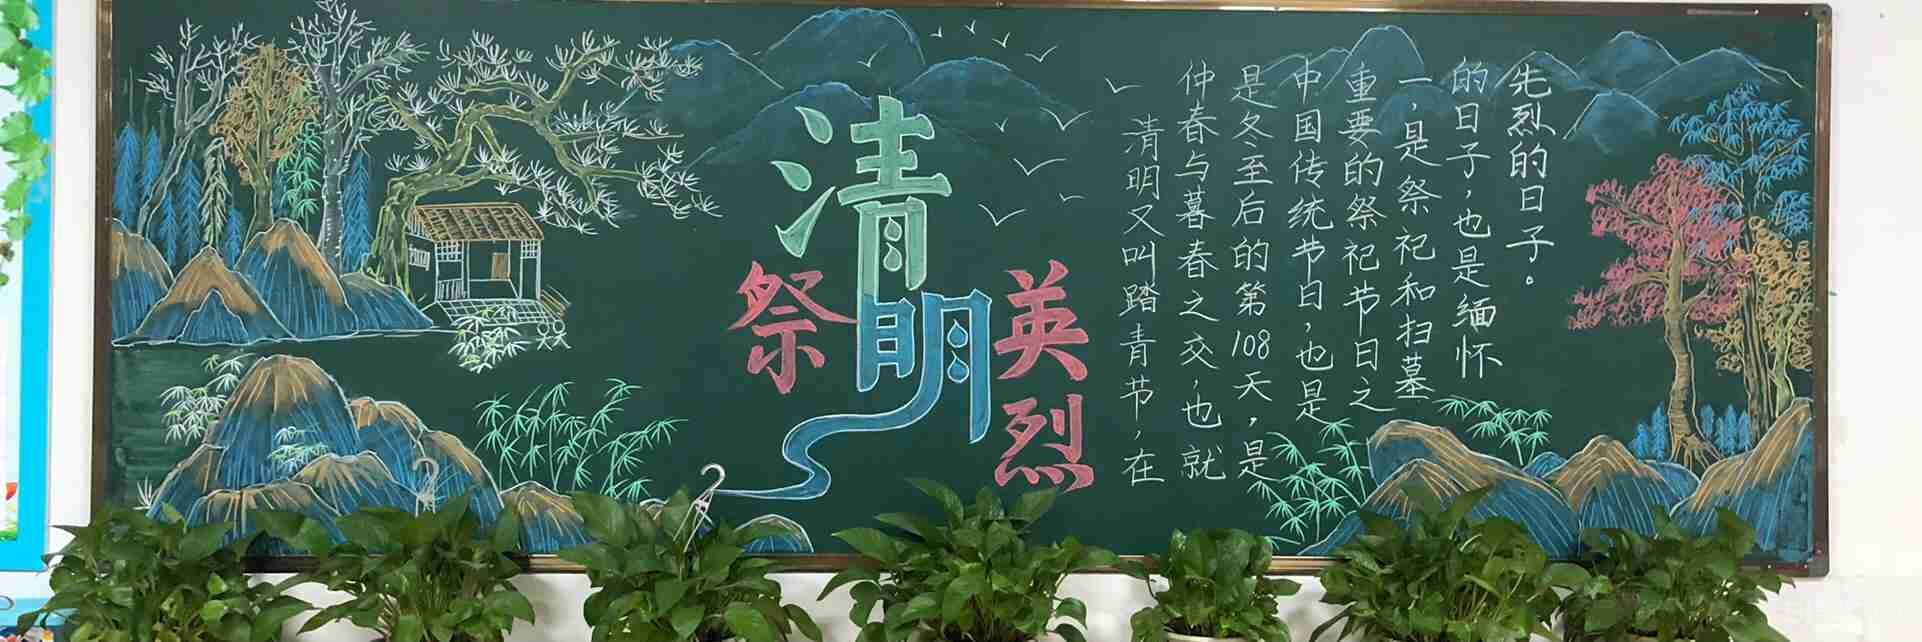 清明
祭英烈
清明又叫踏青节，在
仲春与暮春之交，也就
是冬至后的第108天，是
中国传统节日，也是
重要的祭祀节日之
一，是祭祀和扫墓
的日子，也是缅怀
先烈的日子。